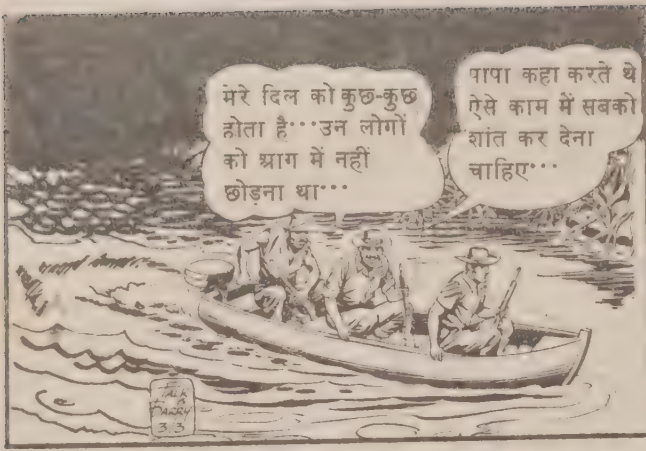 मेरे दिल को कुछ-कुछ
होता है···उन लोगों
को आग में नहीं
छोड़ना था···
पापा कहा करते थे
ऐसे काम में सबको
शांत कर देना
चाहिए···
FALK
&
BARRY
3 3